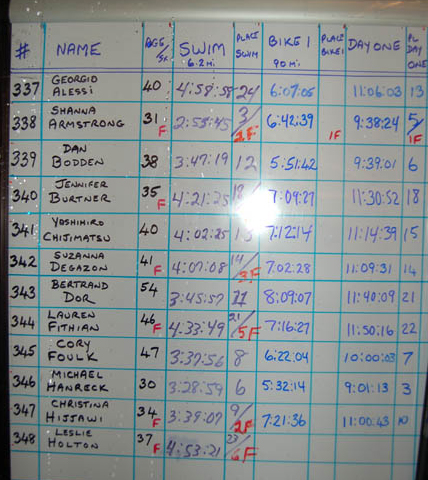 # NAME AGE/SX SWIM 6.2 mi PLACE SWIM BIKE 1 90 mi. PLACE BIKE 1 DAY ONE PL DAY ONE
337 GEORGIO ALESSI 40 4:58:58 24 6:07:05 11:06:03 13
338 SHANNA ARMSTRONG 31 F 2:55:45 3/1F 6:42:39 1F 9:38:24 5/1F
339 DAN BODDEN 38 3:47:19 12 5:51:42 9:39:01 6
340 JENNIFER BURTNER 35 F 4:21:25 7:09:27 11:30:52 18
341 YOSHIHIRO CHIJIMATSU 40 4:02:25 7:12:14 11:14:39 15
342 SUZANNA DEGAZON 41 F 4:07:08 14/3F 7:02:28 11:09:31 14
343 BERTRAND DOR 54 3:45:57 11 8:09:07 11:40:09 21
344 LAUREN FITHIAN 46 F 4:33:49 21/5F 7:16:27 11:50:16 22
345 CORY FOULK 47 3:37:56 8 6:22:04 10:00:03 7
346 MICHAEL HANRECK 30 3:28:59 6 5:32:14 9:01:13 3
347 CHRISTINA HIJJAWI 34 F 3:39:07 9/2F 7:21:36 11:00:43 10
348 LESLIE HOLTON 37 F 4:53:21 23/6F